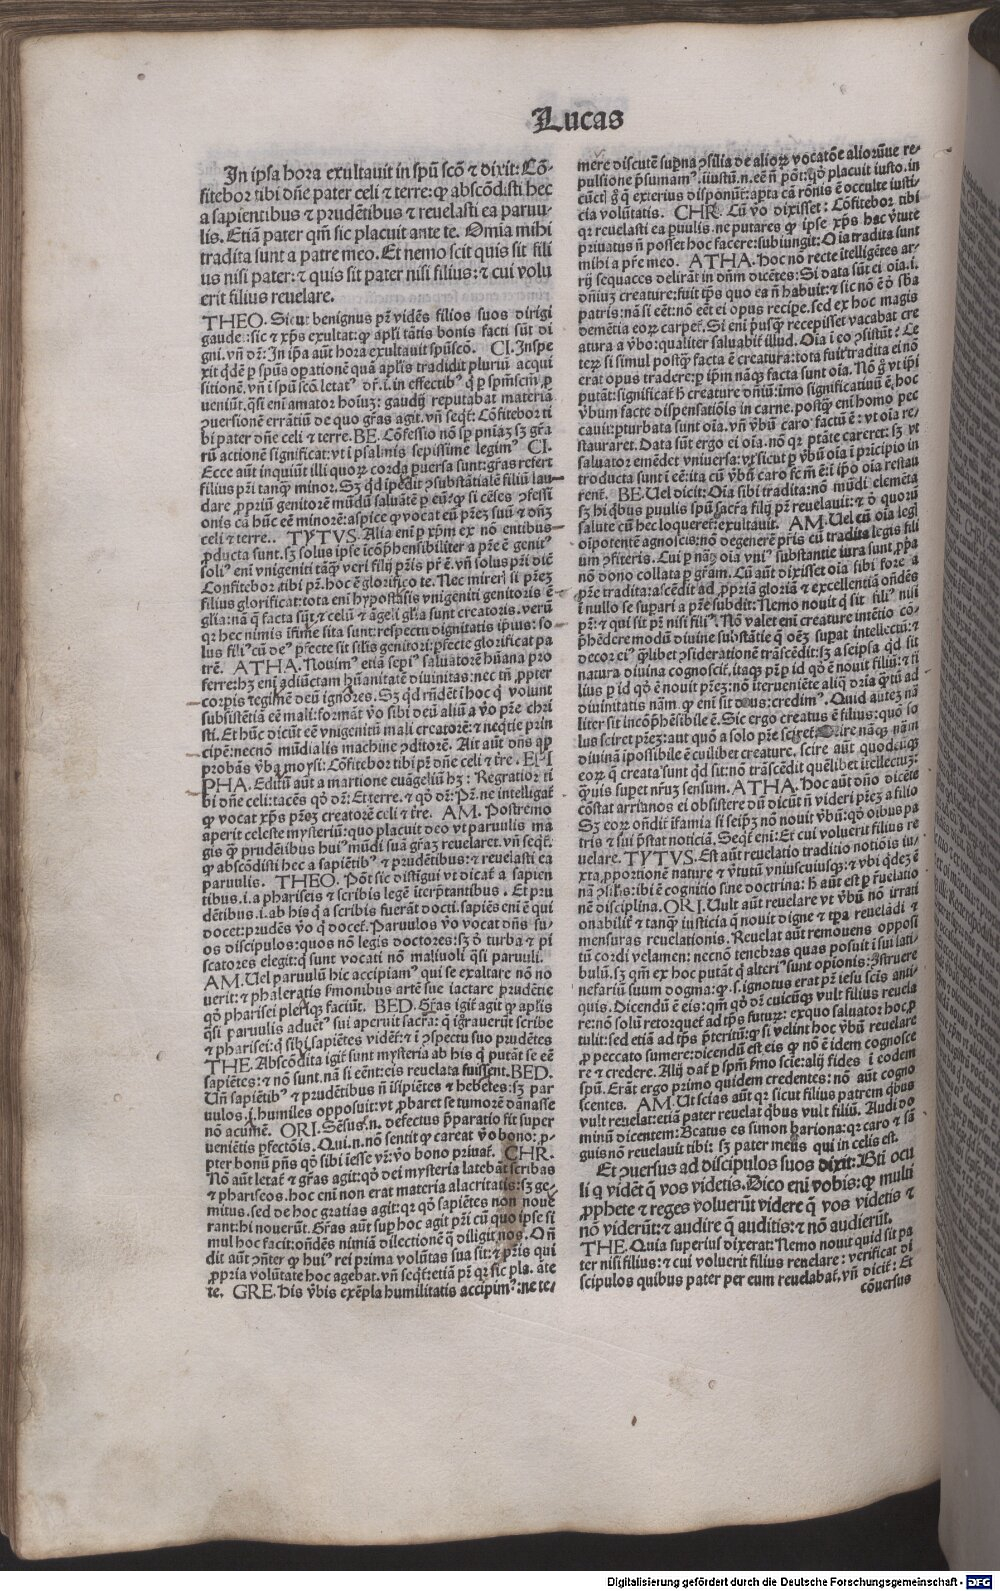 Lucas
In ipsa hora exultauit in spũ scõ ⁊ dixit: Cõ-
fitebor tibi dñe pater celi ⁊ terre: qꝫ abscõdisti hec
a sapientibus ⁊ prudẽtibus ⁊ reuelasti ea paruu-
lis. Etiã pater qm̃ sic placuit ante te. Omia mihi
tradita sunt a patre meo. Et nemo scit quis sit fili
us nisi pater: ⁊ quis sit pater nisi filius: ⁊ cui volu
erit filius reuelare.
THEO. Sicut benignus pr̃ vidẽs filios suos dirigi
gaudet: sic ⁊ xp̃s exultat: qꝫ apl̃i tãtis bonis facti sũt di
gni. vñ dr̃: In ip̃a aũt hora exultauit spũscõ. CI. Inspe
xit qd̃e ꝑ spũs opationẽ quã apl̃is tradidit pluriũ acqui
sitionẽ. vñ ⁊ ĩ spũ scõ letatꝰ dr̃.
ueniũt. qsi eni amator hoĩuꝫ: gaudij reputabat materiã
ↄuersionẽ errãtiũ de quo gr̃as agit. vñ seqt̃: Cõfitebor ti
bi pater dñe celi ⁊ terre. BE. Cõfessio nõ sꝑ pniaꝫ sꝫ gr̃a
rũ actionẽ significat: vt ĩ psalmis sepissime legimꝰ CI.
Ecce aũt inquiũt illi quoꝝ corda ꝑuersa sunt: gr̃as refert
filius pr̃i tanqꝫ minor. Sꝫ qd̃ ĩpedit ↄsubstãtialẽ filiũ lau-
dare ꝓpriũ genitorẽ mũdũ saluãtẽ ꝑ eũ?
onis cã hũc eẽ minorẽ: aspice qꝫ vocat eũ pr̃eꝫ suũ ⁊ dñꝫ
celi ⁊ terre.. TYTVS. Alia eni ꝑ xp̃m ex nõ entibus
ꝓducta sunt. sꝫ solus ipse icõp̃hensibiliter a pr̃e ẽ genitꝰ
soliꝰ eni vnigeniti tãqꝫ veri filij pr̃is pr̃ ẽ. vñ solus pr̃i dic̃
Confitebor tibi pr̃. hoc ẽ glorifico te. Nec mirer̃ si pr̃eꝫ
filius glorificat: tota eni hypostasis vnigeniti genitoris ẽ
gl̃ia: nã q̃ facta sũt ⁊ celũ ⁊ ãgeli gl̃ia sunt creatoris. verũ
qꝛ hec nimis ĩfime sita sunt: respectu dignitatis ip̃ius: so
lus filiꝰ cũ deꝰ ꝑfecte sit silis genitori: ꝑfecte glorificat pa
trẽ. ATHA. Nouimꝰ etiã sepiꝰ saluatorẽ hũana pro
ferre: hꝫ eni adiũctam hũanitatẽ diuinitas: nec tñ ꝓpter
corpis tegimẽ deũ ignores. Sꝫ qd̃ rñdẽt ĩ hoc q̃ volunt
subsistẽtiã eẽ mali: formãt ṽo sibi deũ aliũ a ṽo pr̃e chri
sti. Et hũc dicũt eẽ vnigenitũ mali creatorẽ: ⁊ neqtie prin
cipẽ: necnõ mũdialis machine ↄditorẽ. Ait aũt dñs
probãs ṽba moysi: Cõfitebor tibi pr̃ dñe celi ⁊ tr̃e. EPI
PHA. Editũ aũt a martione euãgeliũ hꝫ: Regratior ti
bi dñe celi: tacẽs qõ dr̃: Et terre. ⁊ qõ dr̃: Pr̃. ne intelligat̃
qꝫ vocat xp̃s pr̃eꝫ creatorẽ celi ⁊ tr̃e. AM. Postremo
aperit celeste mysteriũ: quo placuit deo vt paruulis ma
gis qꝫ prudẽtibus huiꝰ mũdi suã gr̃aꝫ reuelaret. vñ seqt̃.
qꝫ abscõdisti hec a sapiẽtibꝰ ⁊ prudẽtibus: ⁊ reuelasti ea
paruulis. THEO. Põt sic distigui vt dicat̃ a sapien
tibus. i. a phariseis ⁊ scribis legẽ iterp̃tantibus. Et pru
dẽtibus. i. ab his q̃ a scribis fuerãt docti. sapiẽs eni ẽ qui
docet: prudẽs ṽo q̃ docet̃. Paruulos ṽo vocat dñs su-
os discipulos: quos nõ legis doctores: sꝫ õ turba ⁊ pi
scatores elegit: q̃ sunt vocati nõ maliuoli qsi paruuli.
AM. Uel paruulũ hic accipiamꝰ qui se exaltare nõ no
uerit: ⁊ phaleratis ẜmonibus artẽ sue iactare prudẽtie
qõ pharisei pleriqꝫ faciũt. BED. Gr̃as igit̃ agit qꝫ apl̃is
qsi paruulis aduẽtꝰ sui aperuit sacr̃a: q̃ igrauerũt scribe
⁊ pharisei: q̃ sibi sapiẽtes vidẽt̃: ⁊ ĩ ↄspectu suo prudẽtes
THE. Abscõdita igit̃ sunt mysteria ab his q̃ putãt se eẽ
sapiẽtes: ⁊ nõ sunt. nã si eẽnt: eis reuelata fuissent. BED.
Uñ sapiẽtibꝰ ⁊ prudẽtibus ñ isipiẽtes ⁊ hebetes: sꝫ par
uulos. i. humiles opposuit: vt ꝓbaret se tumorẽ dãnasse
nõ acumẽ. ORI. Sẽsus. n. defectus p̃paratio fit super
ueniẽtis ꝑfectõis. Qui. n. nõ sentit qꝫ careat ṽo bono: ꝓ-
pter bonũ pñs qõ sibi iẽsse vr̃: ṽo bono priuat̃. CHR.
Nõ aũt letat̃ ⁊ gr̃as agit: qõ dei mysteria latebãt scribas
⁊ phariseos. hoc eni non erat materia alacritatis: sꝫ ge-
mitus. sed de hoc gratias agit: qꝛ qõ sapiẽtes non noue
rant: hi nouerũt. Gr̃as aũt sup hoc agit pr̃i cũ quo ipse si
mul hoc facit: oñdẽs nimiã dilectionẽ q̃ diligit nos. Oñ
dit aũt ↄñter qꝫ huiꝰ rei prima volũtas sua sit: ⁊ pr̃is qui
ꝓpria volũtate hoc agebat. vñ seqt̃: etiã pr̃ qꝛ sic pla. ãte
te. GRE. His ṽbis exẽpla humilitatis accipimꝰ: ne te-
mere discutẽ supna ↄsilia de alioꝝ vocatõe aliorũue re-
pulsione p̃sumamꝰ. iniustũ. n. eẽ ñ põt: qõ placuit iusto. in
cũctis ergo q̃ exterius disponũt̃: apta cã rõnis ẽ occulte iusti-
cia volũtatis. CHR. Cũ ṽo dixisset: Cõfitebor tibi
qꝛ reuelasti ea ꝑuulis. ne putares qꝫ ipse xp̃s hac ṽtute
priuatus ñ posset hoc facere: subiungit: Oĩa tradita sunt
mihi a pr̃e meo. ATHA. Hoc nõ recte itelligẽtes ar-
rij sequaces delirãt in dñm dicẽtes: Si data sũt ei oĩa. i.
dñiuꝫ creature: fuit tp̃s quo ea ñ habuit: ⁊ sic nõ ẽ õ sb̃a
patris: nã si eẽt: nõ eẽt ei opus recipe. sed ex hoc magis
demẽtia eoꝝ carpet̃. Si eni pusqꝫ recepisset vacabat cre
atura a ṽbo: qualiter saluabit̃ illud. Oĩa ĩ eo ↄsistũt? Ce
teꝝ si simul postqꝫ facta ẽ creatura: tota fuit tradita ei nõ
erat opus tradere: ꝑ ip̃m nãqꝫ facta sunt oĩa. Nõ g̃ vt ip̃i
putãt: significat̃ h̃ creature dñiũ: imo significatiuũ ẽ, hoc
ṽbum facte dispensatiõis in carne. postqꝫ eni homo pec
cauit: ꝑturbata sunt oĩa. vñ ṽbũ caro factũ ẽ: vt oĩa re-
stauraret. Data sũt ergo ei oĩa. nõ qꝛ ptãte careret: sꝫ vt
saluator emẽdet vniuersa: vt sicut ꝑ ṽbũ oĩa ĩ principio in
troducta sunt ĩ eẽ: ita cũ ṽbũ caro fc̃m ẽ: ĩ ip̃o oĩa restau
rent̃. BE. Uel dicit: Oĩa sibi tradita: nõ mũdi elemẽta
sꝫ hi q̃bus ꝑuulis spũ sacr̃a filij pr̃ reuelauit: ⁊ õ quorũ
salute cũ hec loqueret̃: exultauit. AM. Uel cũ oĩa legi
oĩpotentẽ agnoscis: nõ degenerẽ pr̃is cũ tradita legis filĩ
um ↄfiteris. Cui ꝑ naꝫ oĩa vniꝰ substantie iura sunt, ꝓp̃a
nõ dono collata ꝑ gr̃am. Cũ aũt dixisset oĩa sibi fore a
pr̃e tradita: ascẽdit ad ꝓpriã gloriã ⁊ excellentiã oñdẽs
ĩ nullo se supari a pr̃e subdit: Nemo nouit q̃ sit filiꝰ nisi
pr̃: ⁊ qui sit pr̃ nisi filiꝰ. Nõ valet eni creature intẽtio cõ-
p̃hẽdere modũ diuine substãtie q̃ oẽꝫ supat intellectũ: ⁊
decor eiꝰ q̃libet ↄsiderationẽ trãscẽdit: sꝫ a seipsa qd̃ sit
natura diuina cognoscit̃. itaqꝫ pr̃ ꝑ id qõ ẽ nouit filiũ: ⁊ fi
lius ꝑ id qõ ẽ nouit pr̃eꝫ: nõ iterueniẽte aliq̃ dr̃ia q̃tũ ad
diuinitatis nãm. qꝫ eni sit deus: credimꝰ. Quid autẽꝫ nã
liter sit incõp̃hẽsibile ẽ. Sic ergo creatus ẽ filius: quõ so
lus sciret pr̃eꝫ: aut quõ a solo pr̃e sciret̃. Scire nãqꝫ nãm
diuinã ipossibile ẽ cuilibet creature. scire aũt quodcũqꝫ
eoꝝ q̃ creata sunt qd̃ sit: nõ trãscẽdit quẽlibet itellectuꝫ:
q̃uis supet nr̃uꝫ sensum. ATHA. Hoc aũt dño dicẽte
cõstat arrianos ei obsistere dũ dicũt ñ videri pr̃eꝫ a filio
Sꝫ eoꝝ oñdit̃ ifamia si seip̃ꝫ nõ nouit ṽbũ: qõ oibus pa
tris ⁊ sui p̃stat noticiã. Seqt̃ eni: Et cui voluerit filius re
uelare. TYTVS. Est aũt reuelatio traditio notiõis iu-
xta ꝓportionẽ nature ⁊ ṽtutũ vniuscuiusqꝫ: ⁊ vbi qd̃eꝫ ẽ
nã ↄsil̃is: ibi ẽ cognitio sine doctrina: h̃ aũt est ꝑ r̃uelatio
nẽ disciplina. ORI. Uult aũt reuelare vt ṽbũ nõ irrati
onabilit̃ ⁊ tanqꝫ iusticia q̃ nouit digne ⁊ tp̃a reuelãdi ⁊
mensuras reuelationis. Reuelat aũt remouens opposi
tũ cordi velamen: necnõ tenebras quas posuit ĩ sui lati-
bulũ. sꝫ qm̃ ex hoc putãt q̃ alteriꝰ sunt opionis: ĩstruere
nefariũ suum dogma: qꝫ. s. ignotus erat pr̃ iesu scis anti-
quis. Dicendũ ẽ eis: qm̃ qõ dr̃ cuicũqꝫ vult filius reuela
re: nõ solũ retorquet̃ ad tp̃s futuꝝ: exquo saluator hoc ꝓ
tulit: sed etiã ad tp̃s p̃teritũ: qꝫ si velint hoc ṽbũ reuelare
ꝓ peccato sumere: dicendũ est eis qꝫ nõ ẽ idem cognosce
re ⁊ credere. Alij dat̃ ꝑ spm̃ ẜmo scie: alij fides ĩ eodem
spũ. Erãt ergo primo quidem credentes: nõ aũt cogno
scentes. AM. Ut scias aũt qꝛ sicut filius patrem q̃bus
vult reuelat: etiã pater reuelat q̃bus vult filiũ. Audi do
minũ dicentem: Beatus es simon bariona: qꝛ caro ⁊ sã
guis nõ reuelauit tibi: sꝫ pater meus qui in celis est.
Et ↄuersus ad discipulos suos dixit: Bti ocu
li q̃ vidẽt q̃ vos videtis. Dico eni vobis: qꝫ multi
ꝓphete ⁊ reges voluerũt videre q̃ vos videtis ⁊
nõ viderũt: ⁊ audire q̃ auditis: ⁊ nõ audierũt.
THE. Quia superius dixerat: Nemo nouit quid sit pa
ter nisi filius: ⁊ cui voluerit filius reuelare: verificat di
scipulos quibus pater per eum reuelabat̃, vñ dicit̃: Et
cõuersus
Digitalisierung gefördert durch die Deutsche Forschungsgemeinschaft - DFG